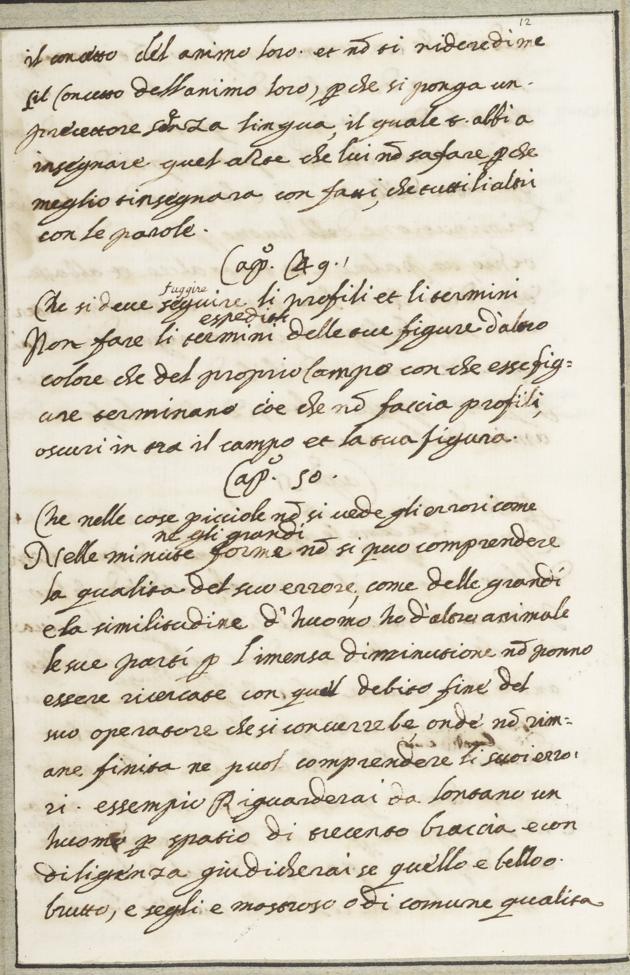 12
il concetto del animo loro. et nō ti ridere di me
il Concetto dell'animo loro, p̄che si ponga un
precettore senza lingua, il quale t. abbi a
insegnare quel arte che lui nō sa fare p̄che
meglio t'insegnara con fatti, che tutti li altri
con le parole.
Cap̊. 49.
fuggire
Che si deve seguire li profili et li termini
espediti
Non fare li termini delle tue figure d'altro
colore che del proprio Campo con che esse fig=
ure terminano cioe che nō faccia profili,
oscuri in tra il campo et la tua figura.
Cap̊. 50.
Che nelle cose picciole nō si vede gli errori come
ne gli grandi
Nelle minute forme nō si puo comprendere
la qualita del suo errore, come delle grandi
e la similitudine d'huomo ho d'altro animale
le sue parti p̄ l'imensa diminutione nō ponno
essere ricercate con quel debito fine del
suo operatore che si concurrebe onde nō rim=
ane finita ne puol comprendere li suoi erro:
ri. essempio Riguarderai da lontano un
huomo p̄ spatio di trecento braccia e con
diligenza giudicherai se quello e bello o
brutto, e s'egli e mostroso o di comune qualita